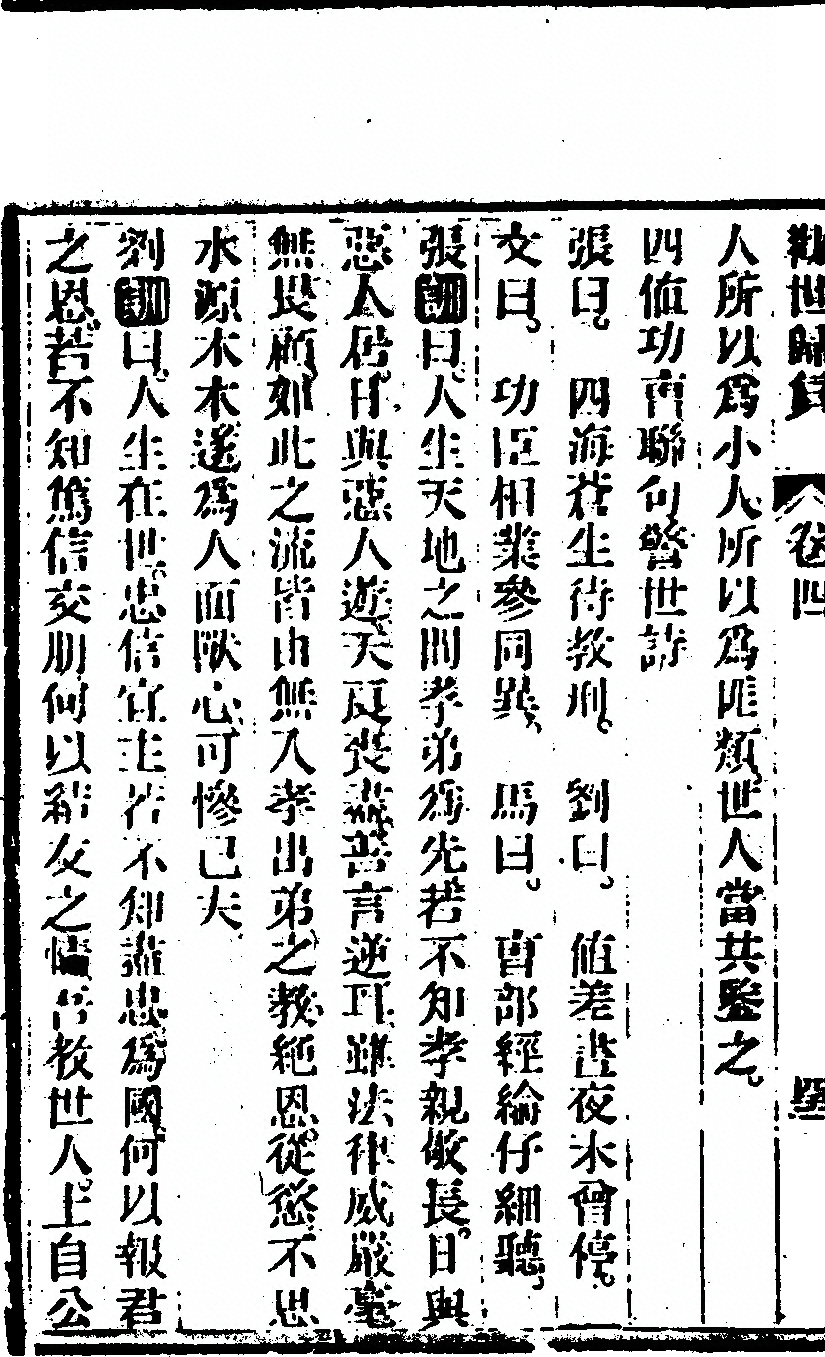 勸世歸真 卷四
人所以爲小人所以爲匪類世人當共鑒之
四值功曹聯句警世詩
張曰 四海蒼生待教刑 劉曰 值差晝夜未曾停
文曰 功臣相業參同異 馬曰 曹部經綸仔細聽
張訓曰人生天地之間孝弟爲先若不知孝親敬長日與
惡人居日與惡人遊天良喪盡善言逆耳雖法律威嚴毫
無畏顧如此之流皆由無入孝出弟之教絕恩從慾不思
水源木本遂爲人面獸心可慘已夫
劉訓曰人生在世忠信宜主若不知盡忠爲國何以報君
之恩若不知篤信交朋何以結友之情吾教世人上自公